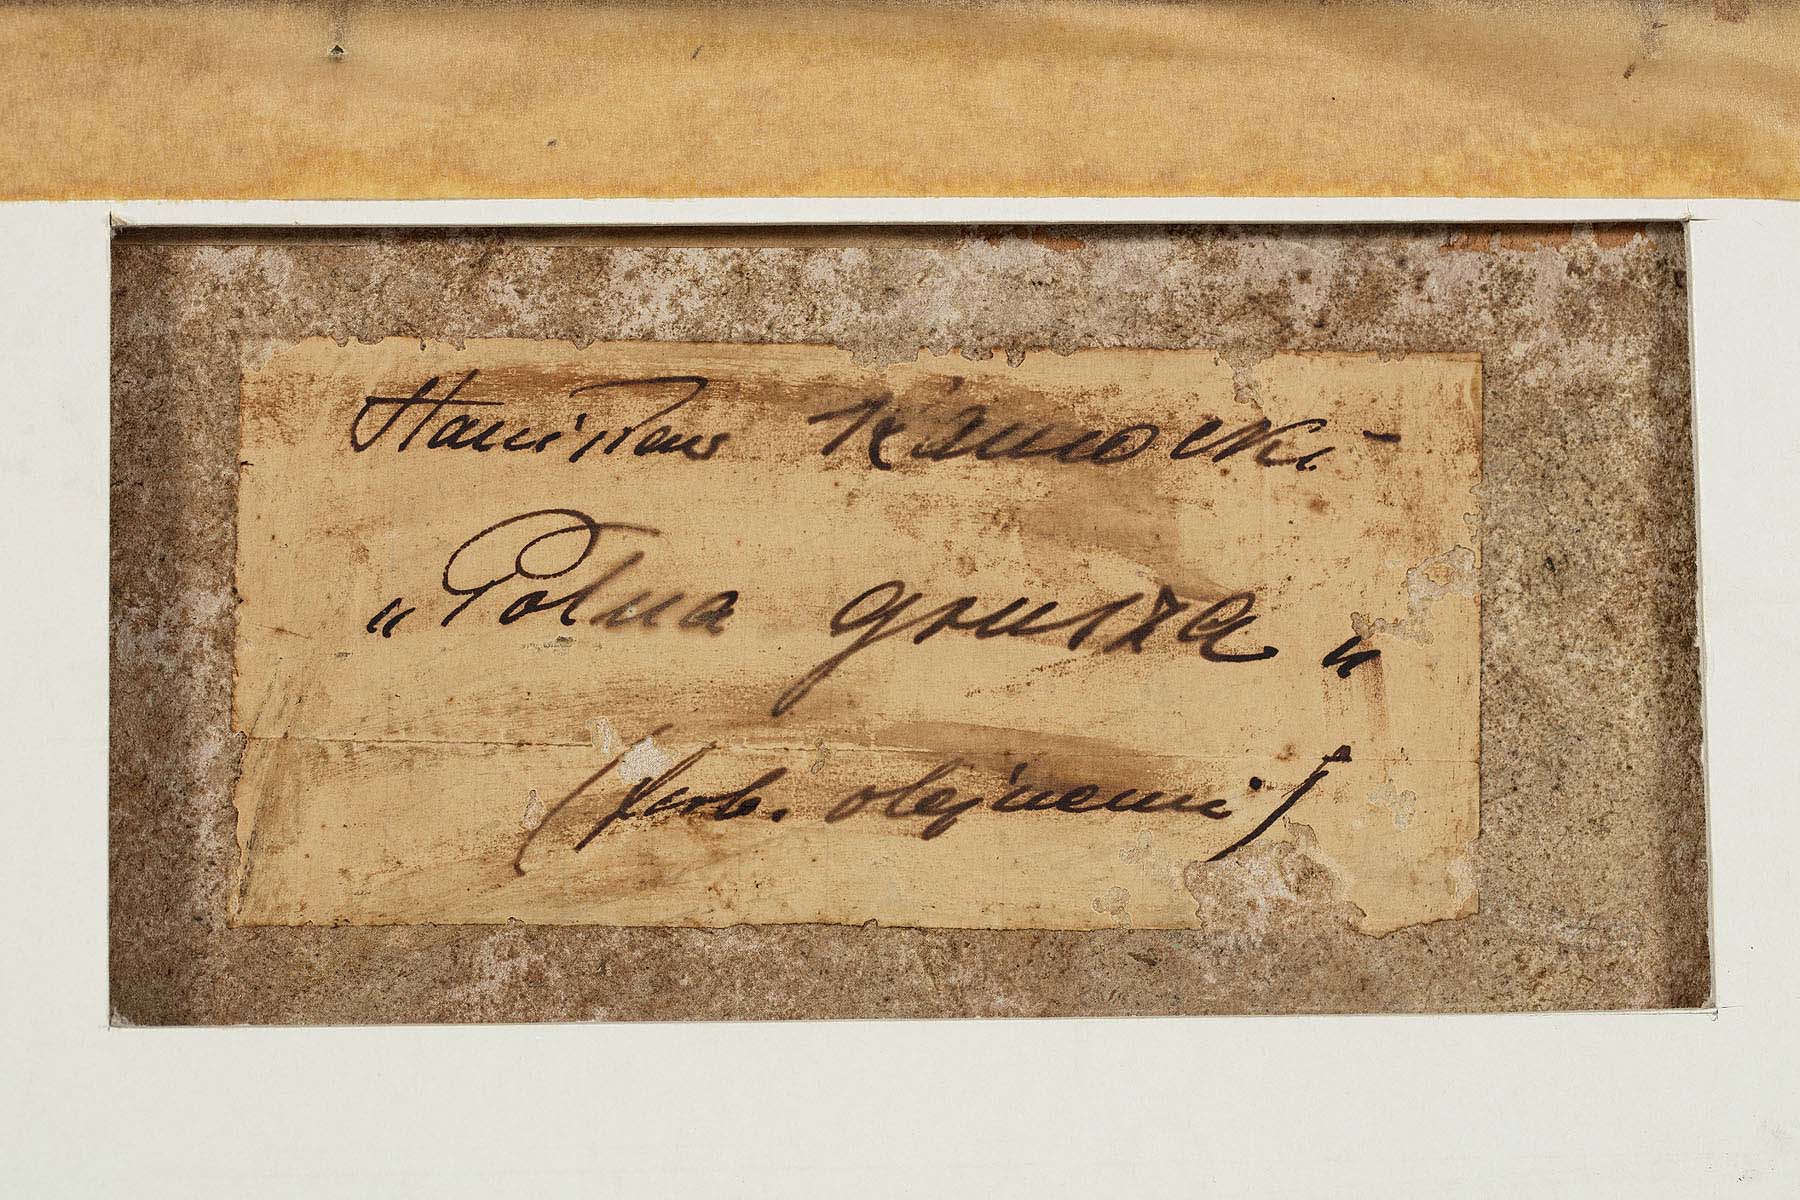 Stanisław Kamocki -
„Polna grusza„
(farb. olejnemi)